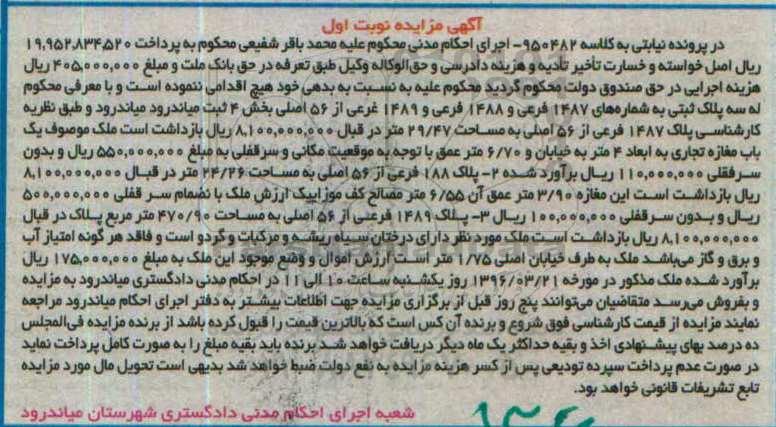 آگهی مزایده نوبت اول
در پرونده نیابتی به کلاسه ۹۵۰۴۸۲- اجرای احکام مدنی محکوم علیه محمد باقر شفیعی محکوم به پرداخت ۱۹,۹۵۲,۸۳۴,۵۲۰
ریال اصل خواسته و خسارت تأخیر تأدیه و هزینه دادرسی و حق‌الوکاله وکیل طبق تعرفه در حق بانک ملت و مبلغ ۴۰۵,۰۰۰,۰۰۰ ریال
هزینه اجرایی در حق صندوق دولت محکوم گردید محکوم علیه به نسبت به بدهی خود هیچ اقدامی ننموده است و با معرفی محکوم
له سه پلاک ثبتی به شماره‌های ۱۴۸۷ فرعی و ۱۴۸۸ فرعی و ۱۴۸۹ غرعی از ۵۶ اصلی بخش ۴ ثبت میاندرود میاندرود و طبق نظریه
کارشناسی پلاک ۱۴۸۷ فرعی از ۵۶ اصلی به مساحت ۲۹/۴۷ متر در قبال ۸,۱۰۰,۰۰۰,۰۰۰ ریال بازداشت است ملک موصوف یک
باب مغازه تجاری به ابعاد ۴ متر به خیابان و ۶/۷۰ متر عمق با توجه به موقعیت مکانی و سرقفلی به مبلغ ۵۵۰,۰۰۰,۰۰۰ ریال و بدون
سرقفلی ۱۱۰,۰۰۰,۰۰۰ ریال برآورد شده ۲- پلاک ۱۸۸ فرعی از ۵۶ اصلی به مساحت ۲۴/۲۶ متر در قبال ۸,۱۰۰,۰۰۰,۰۰۰
ریال بازداشت است این مغازه ۳/۹۰ متر عمق آن ۶/۵۵ متر مصالح کف موزاییک ارزش ملک با نضمام سر قفلی ۵۰۰,۰۰۰,۰۰۰
ریال و بدون سرقفلی ۱۰۰,۰۰۰,۰۰۰ ریال ۳- پلاک ۱۴۸۹ فرعی از ۵۶ اصلی به مساحت ۴۷۰/۹۰ متر مربع پلاک در قبال
۸,۱۰۰,۰۰۰,۰۰۰ ریال بازداشت است ملک مورد نظر دارای درختان سیاه ریشه و مرکبات و گردو است و فاقد هر گونه امتیاز آب
و برق و گاز می‌باشد ملک به طرف خیابان اصلی ۱/۷۵ متر است ارزش اموال و وضع موجود این ملک به مبلغ ۱۷۵,۰۰۰,۰۰۰ ریال
برآورد شده ملک مذکور در مورخه ۱۳۹۶/۰۳/۲۱ روز یکشنبه ساعت ۱۰ الی ۱۱ در احکام مدنی دادگستری میاندرود به مزایده
و بفروش می‌رسد متقاضیان می‌توانند پنج روز قبل از برگزاری مزایده جهت اطلاعات بیشتر به دفتر اجرای احکام میاندرود مراجعه
نمایند مزایده از قیمت کارشناسی فوق شروع و برنده آن کس است که بالاترین قیمت را قبول کرده باشد از برنده مزایده فی‌المجلس
ده درصد بهای پیشنهادی اخذ و بقیه حداکثر یک ماه دیگر دریافت خواهد شد برنده باید بقیه مبلغ را به صورت کامل پرداخت نماید
در صورت عدم پرداخت سپرده تودیعی پس از کسر هزینه مزایده به نفع دولت ضبط خواهد شد بدیهی است تحویل مال مورد مزایده
تابع تشریفات قانونی خواهد بود.
شعبه اجرای احکام مدنی دادگستری شهرستان میاندرود